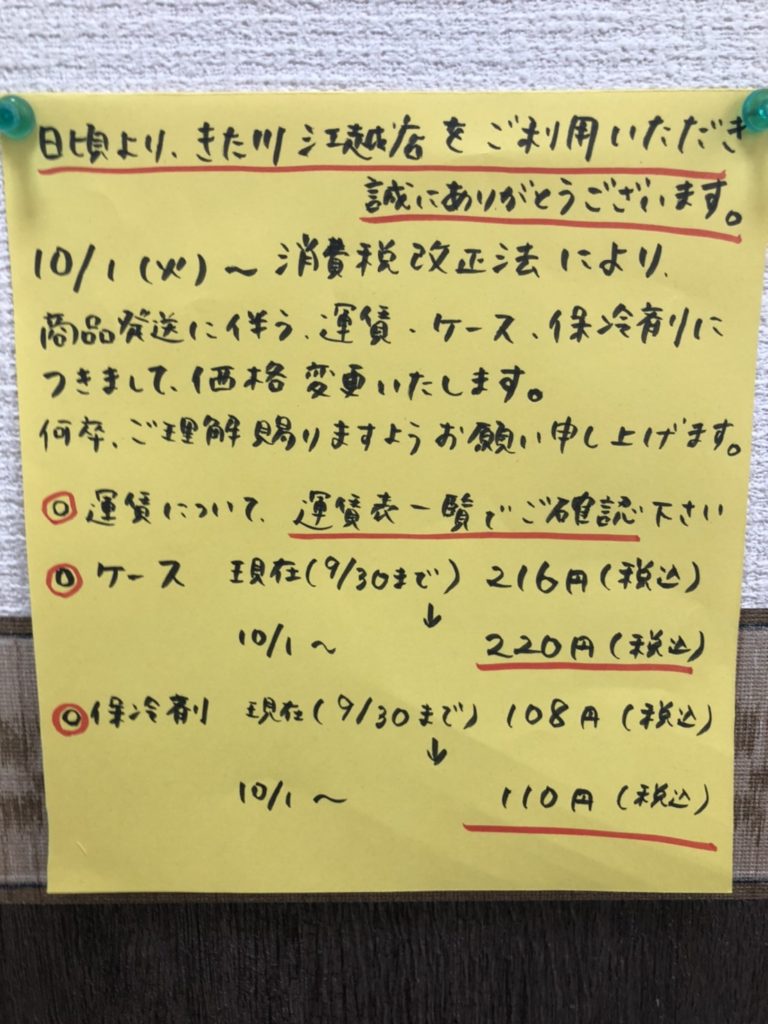 日頃より、きた川 江越店をご利用いただき
誠にありがとうございます。
10/1(火)～消費税改正法により、
商品発送に伴う、運賃・ケース、保冷剤に
つきまして、価格変更いたします。
何卒、ご理解賜りますようお願い申し上げます。
◎運賃について、運賃表一覧でご確認下さい
◎ケース 現在(9/30まで) 216円(税込)
↓
10/1～ 220円(税込)
◎保冷剤 現在(9/30まで) 108円(税込)
↓
10/1～ 110円(税込)